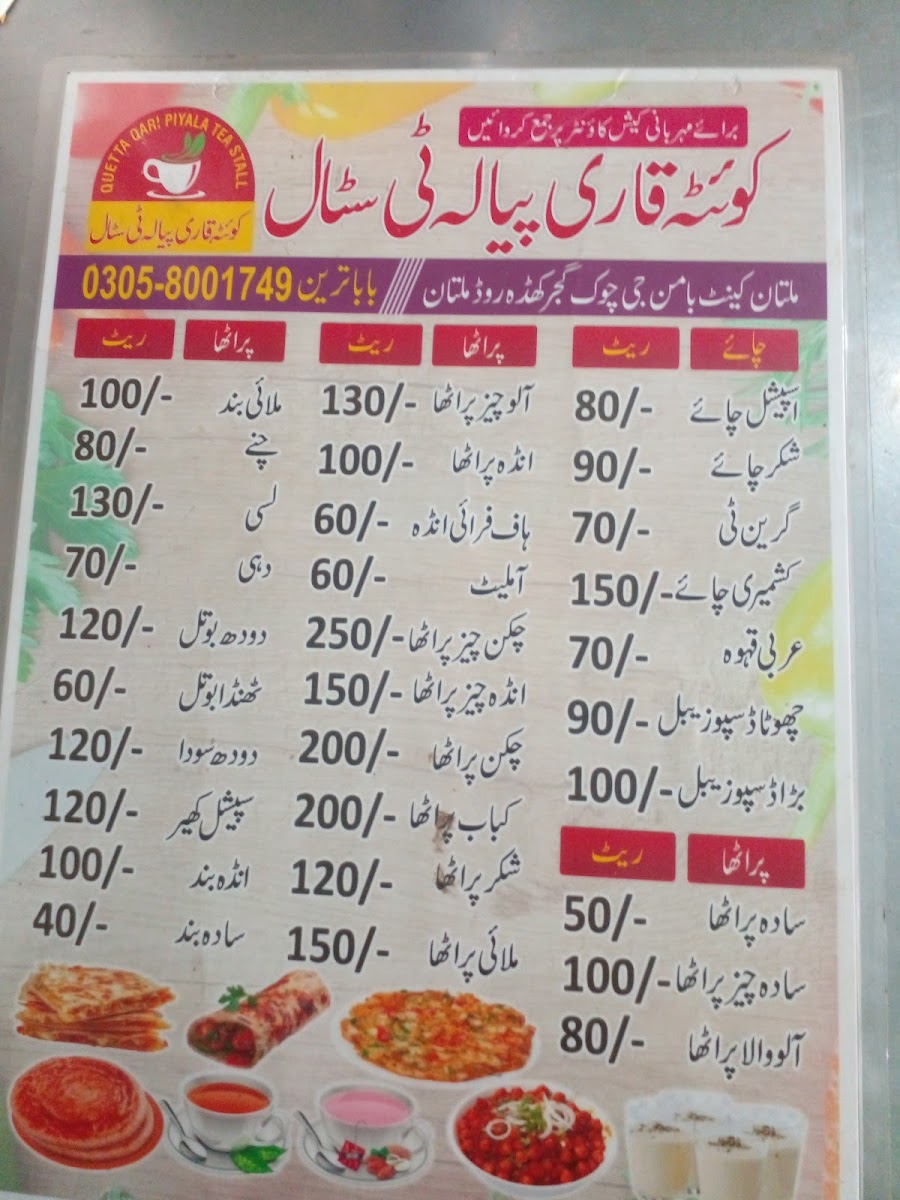 برائے مہربانی کیش کاؤنٹر پر جمع کروائیں
QUETTA QARI PIYALA TEA STALL
کوئٹہ قاری پیالہ ٹی سٹال
کوئٹہ قاری پیالہ ٹی سٹال
ملتان کینٹ بامن جی چوک گجر کھڈہ روڈ ملتان
بابا ترین 0305-8001749
چائے ریٹ
اسپیشل چائے 80/-
شکر چائے 90/-
گرین ٹی 70/-
کشمیری چائے 150/-
عربی قہوہ 70/-
چھوٹا ڈسپوزیبل 90/-
بڑا ڈسپوزیبل 100/-
پراٹھا ریٹ
سادہ پراٹھا 50/-
سادہ چیز پراٹھا 100/-
آلو والا پراٹھا 80/-
پراٹھا ریٹ
آلو چیز پراٹھا 130/-
انڈہ پراٹھا 100/-
ہاف فرائی انڈہ 60/-
آملیٹ 60/-
چکن چیز پراٹھا 250/-
انڈہ چیز پراٹھا 150/-
چکن پراٹھا 200/-
کباب پراٹھا 200/-
شکر پراٹھا 120/-
ملائی پراٹھا 150/-
پراٹھا ریٹ
ملائی بند 100/-
چنے 80/-
لسی 130/-
دہی 70/-
دودھ بوتل 120/-
ٹھنڈا بوتل 60/-
دودھ سوڈا 120/-
سپیشل کھیر 120/-
انڈہ بند 100/-
سادہ بند 40/-